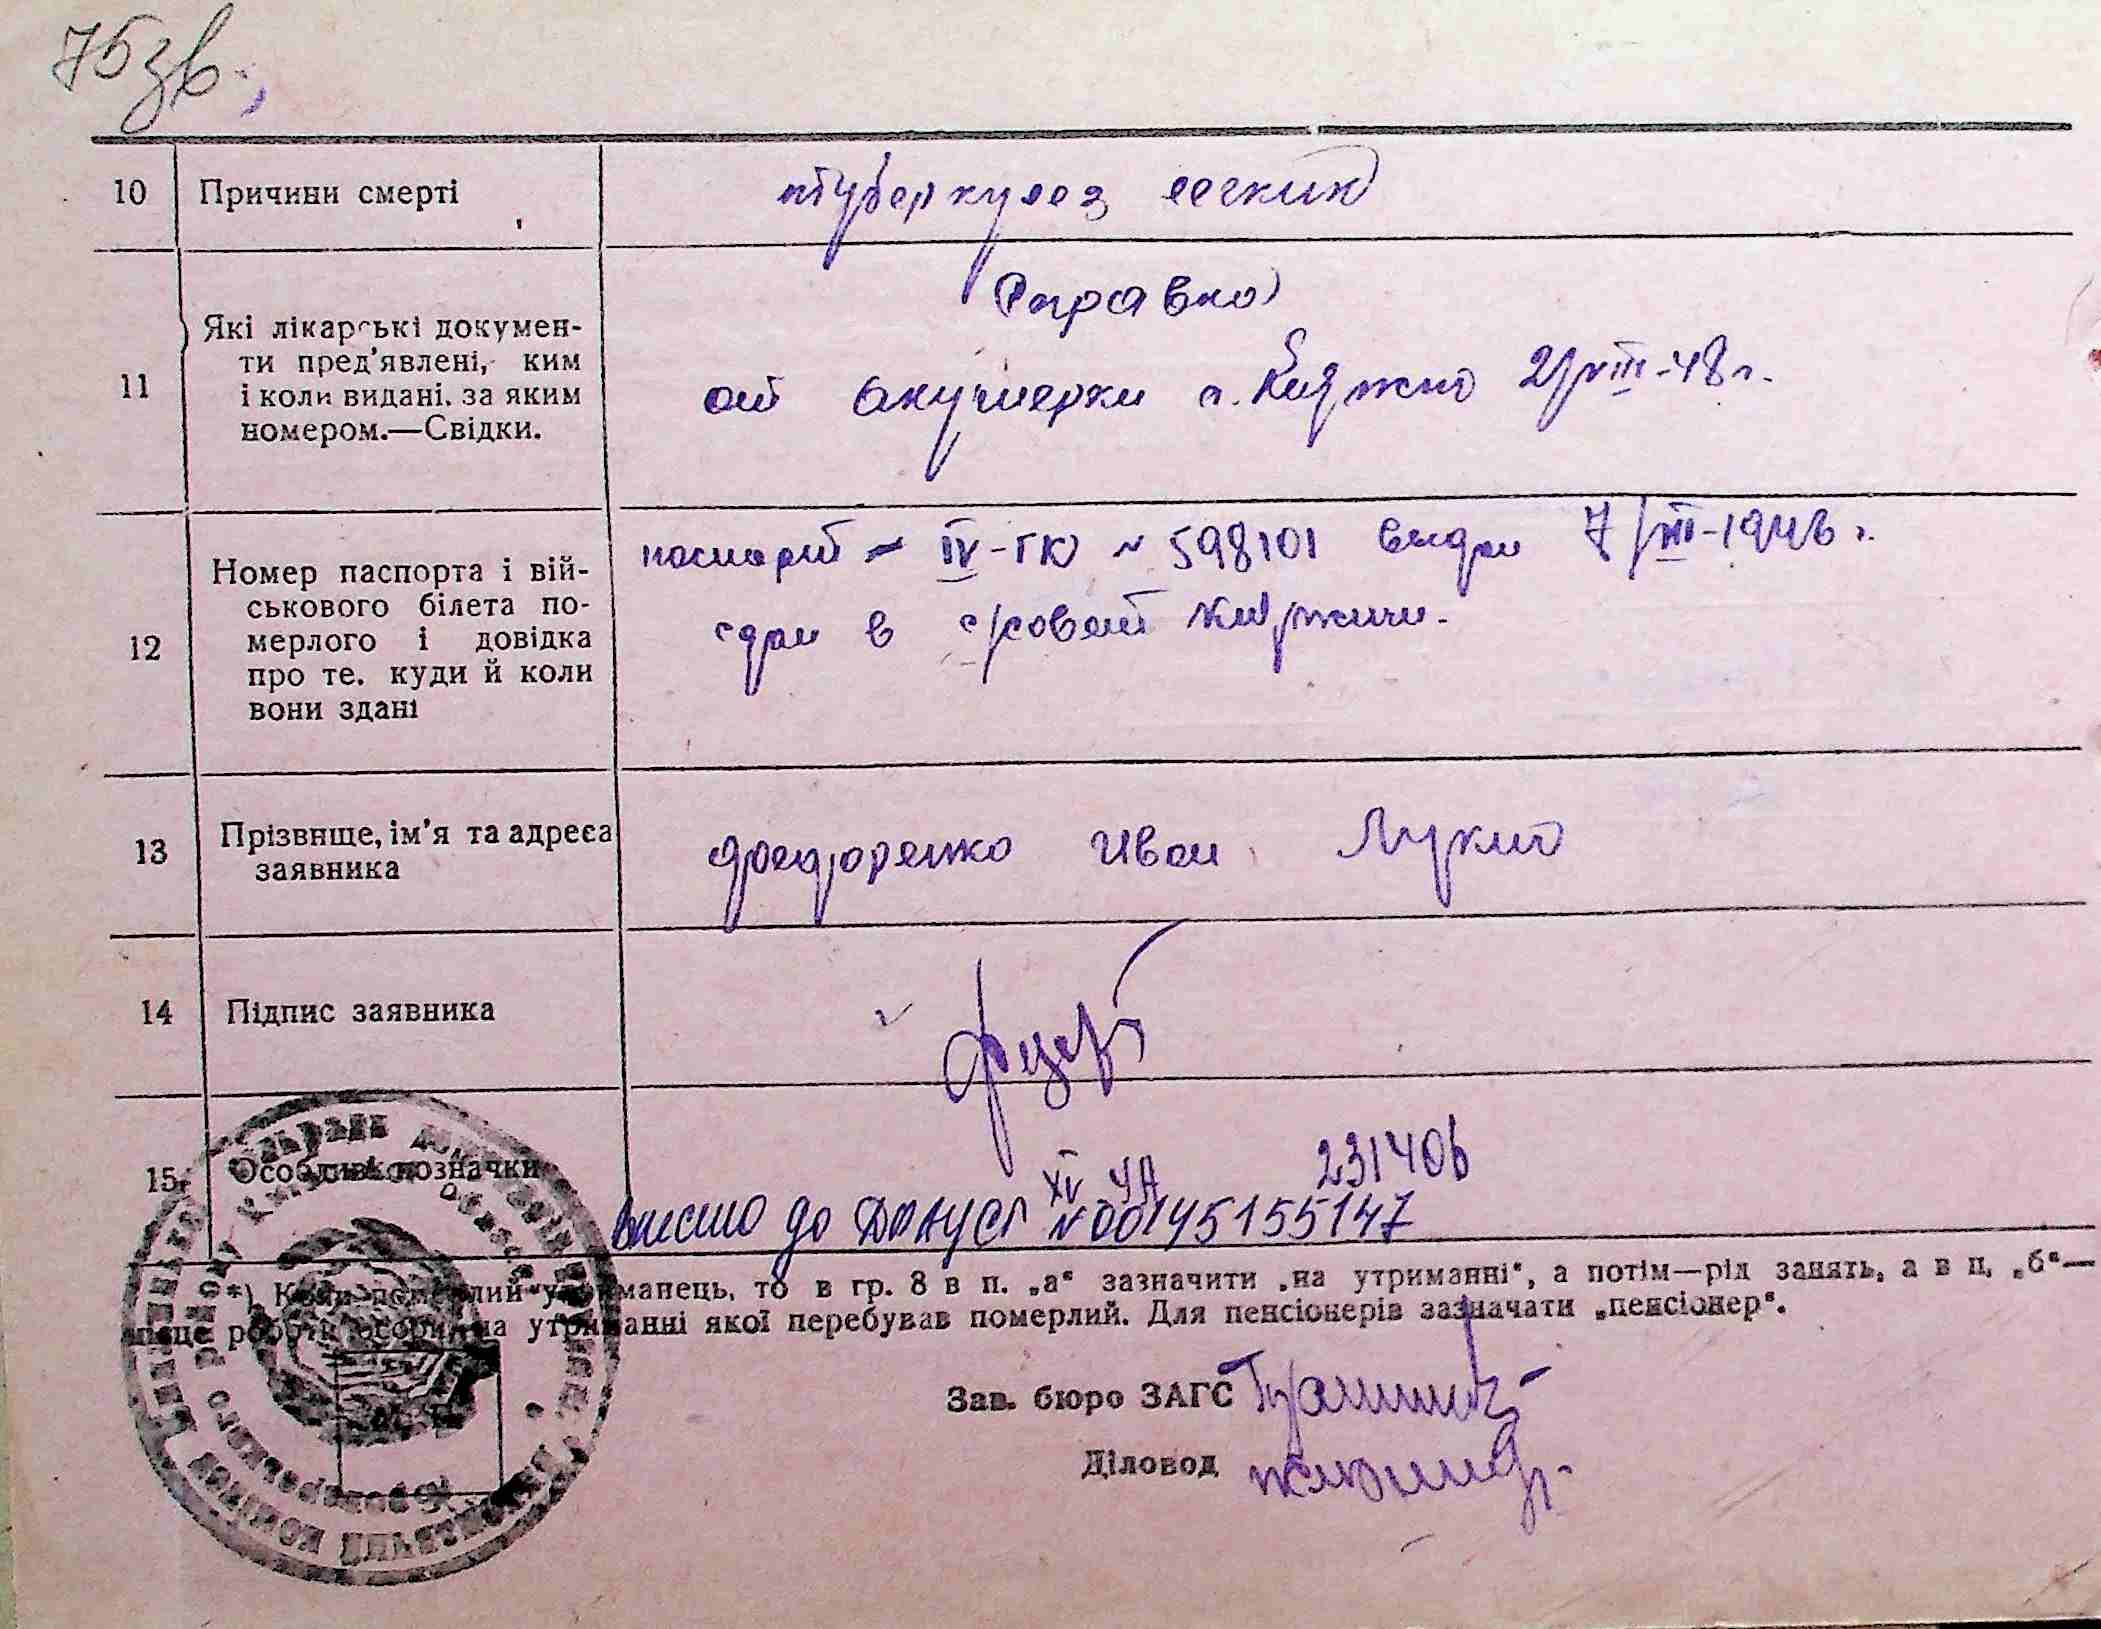 75зв.
10 Причини смерті туберкулез легких
Справка
11 Які лікарські докумен-
ти пред'явлені, ким
і коли видані, за яким
номером.—Свідки.
от акушерки 2/VIII-48 г.
12 Номер паспорта і вій-
ськового білета по-
мерлого і довідка
про те, куди й коли
вони здані
паспорт IV-ГЮ № 598101 выдан 7/VIII-1946 г.
сдан в с/совет
13 Прізвище, ім'я та адреса
заявника
Федоренко Иван
14 Підпис заявника
15 Особливі позначки
XIV УА 231406
внесено до ДРАЦСГ № 00145155147
*) Коли померлий утриманець, то в гр. 8 в п. „а“ зазначити „на утриманні“, а потім—рід занять, а в п. „б“—
місце роботи особи, на утриманні якої перебував померлий. Для пенсіонерів зазначати „пенсіонер“.
Зав. бюро ЗАГС
Діловод